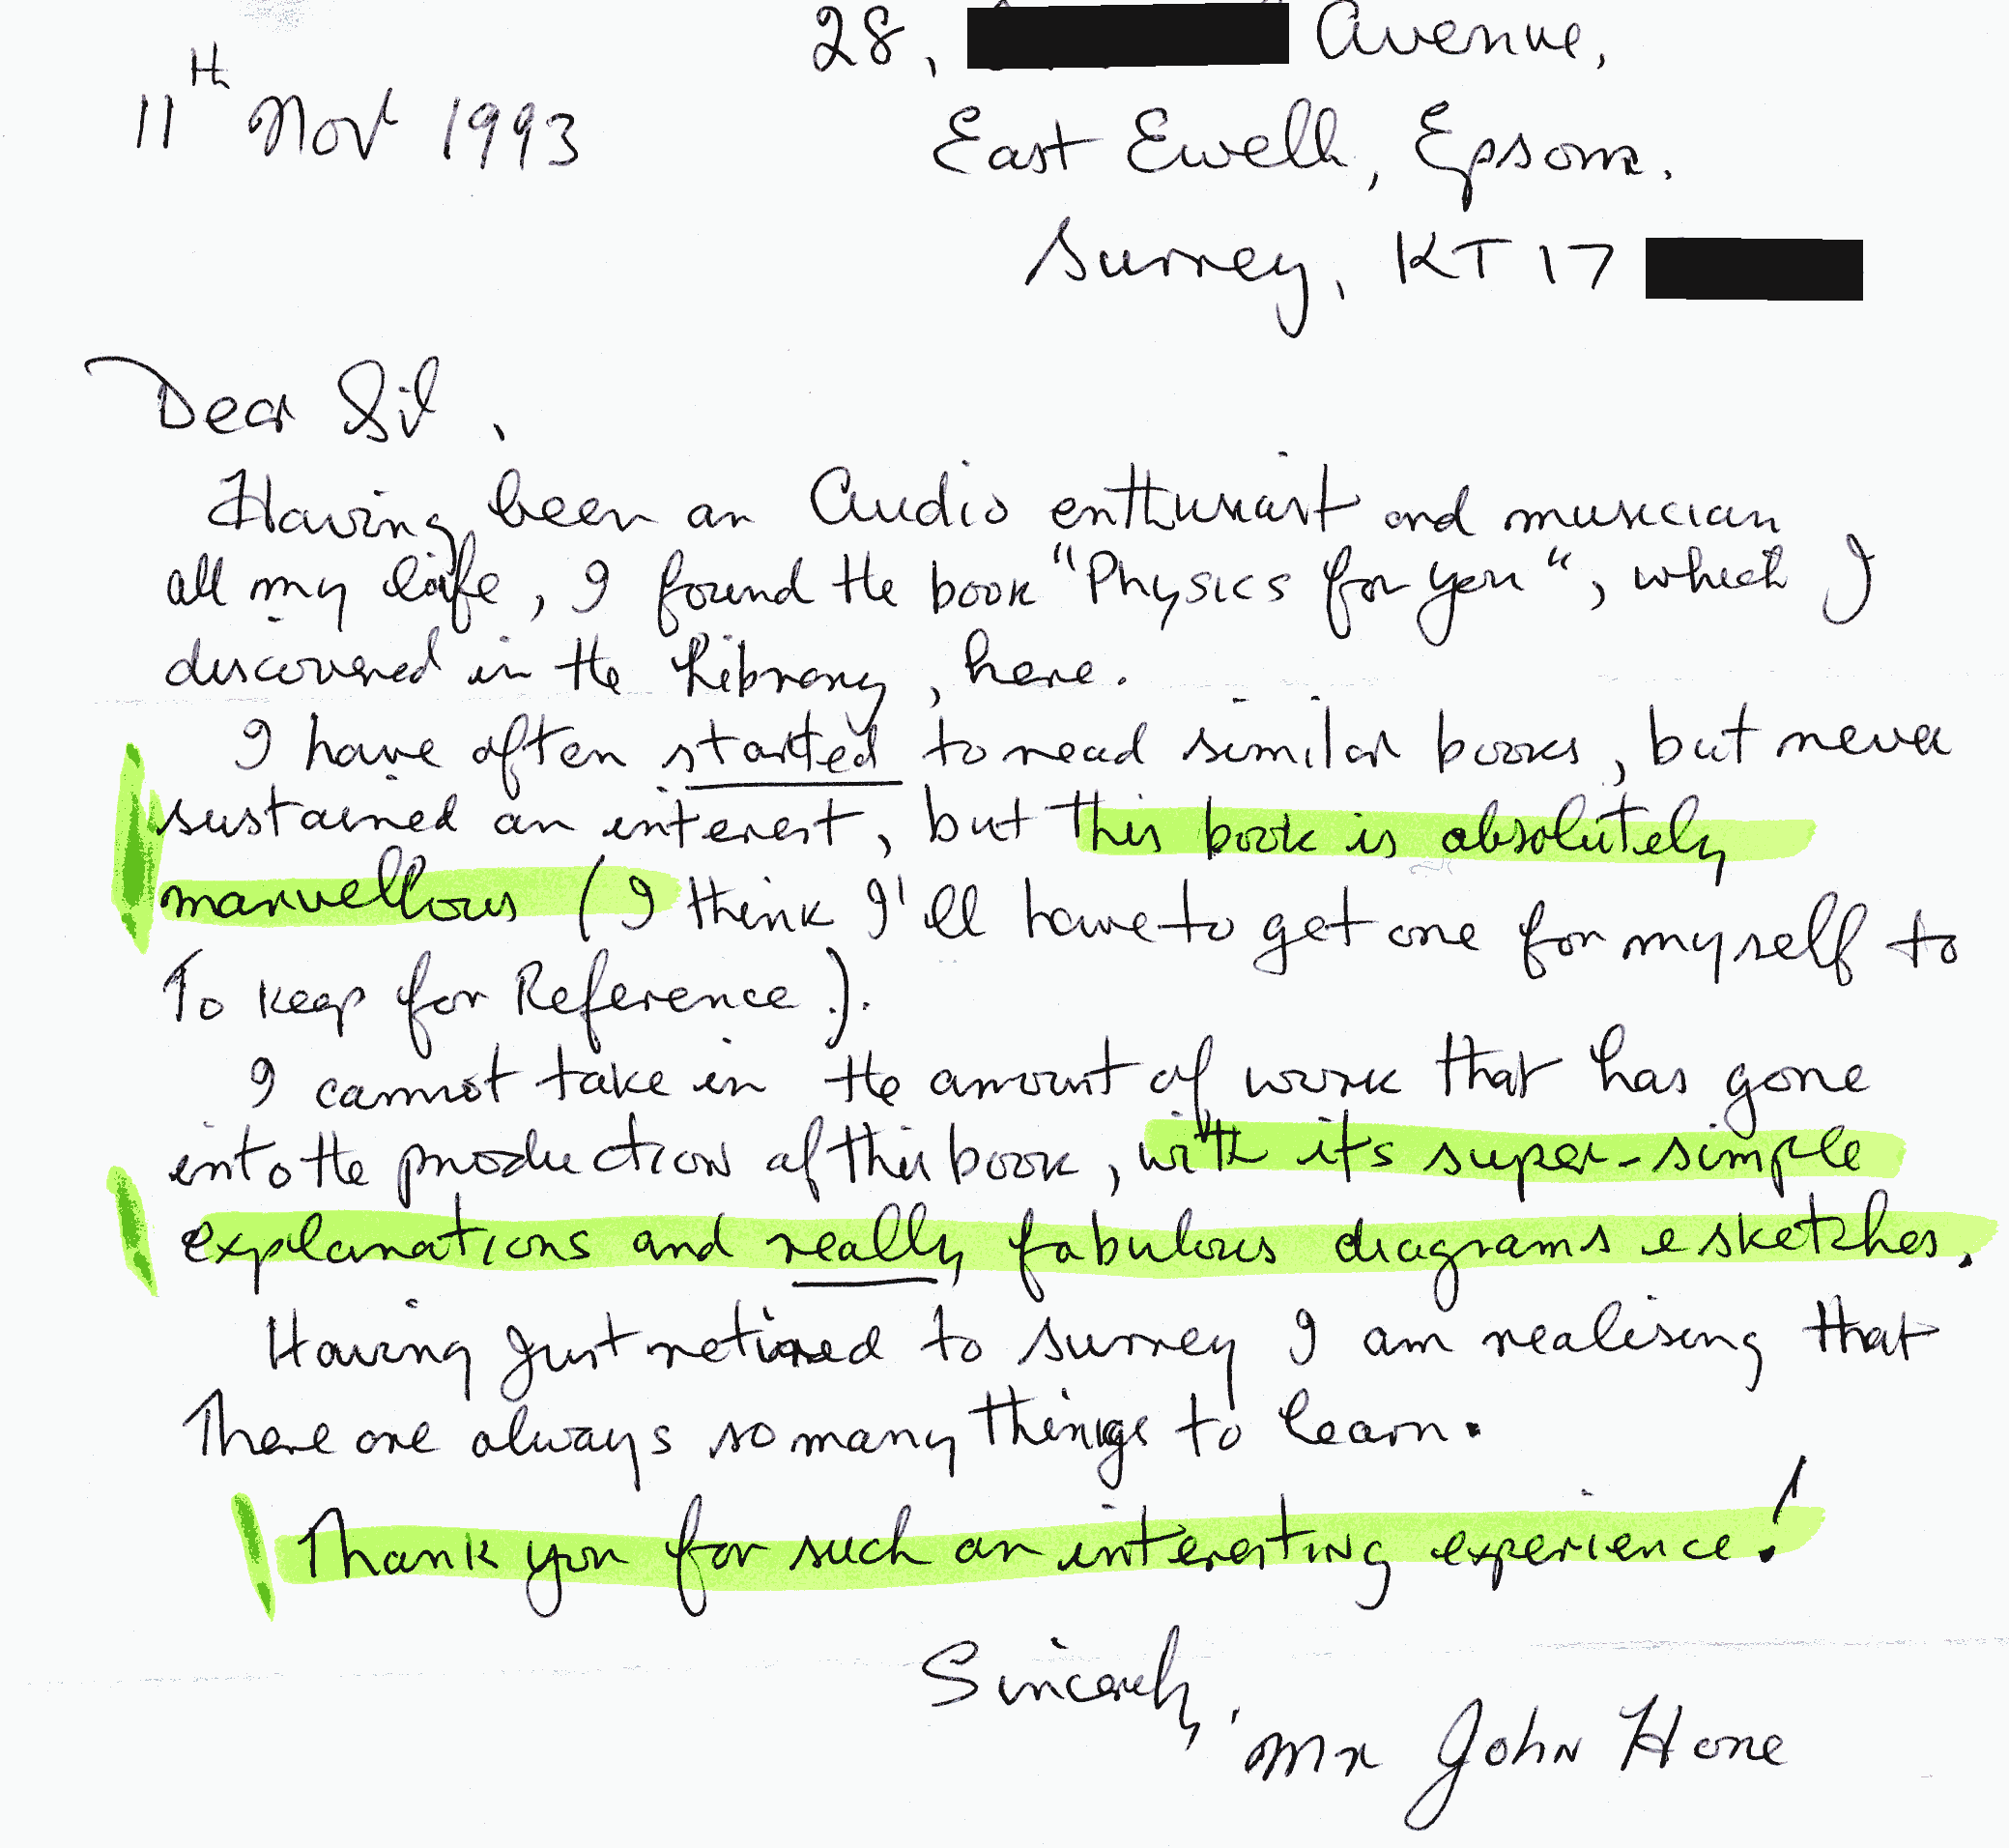 28, Avenue,
11th Nov 1993
East Ewell, Epsom.
Surrey, KT17
Dear Sir,
Having been an Audio enthusiast and musician
all my life, I found the book "Physics for you", which I
discovered in the Library, here.
I have often started to read similar books, but never
sustained an interest, but this book is absolutely
marvellous (I think I'll have to get one for myself to
To keep for Reference.).
I cannot take in the amount of work that has gone
into the production of this book, with its super-simple
explanations and really fabulous diagrams & sketches.
Having just retired to Surrey I am realising that
There are always so many things to learn.
Thank you for such an interesting experience!
Sincerely,
Mr John Hone